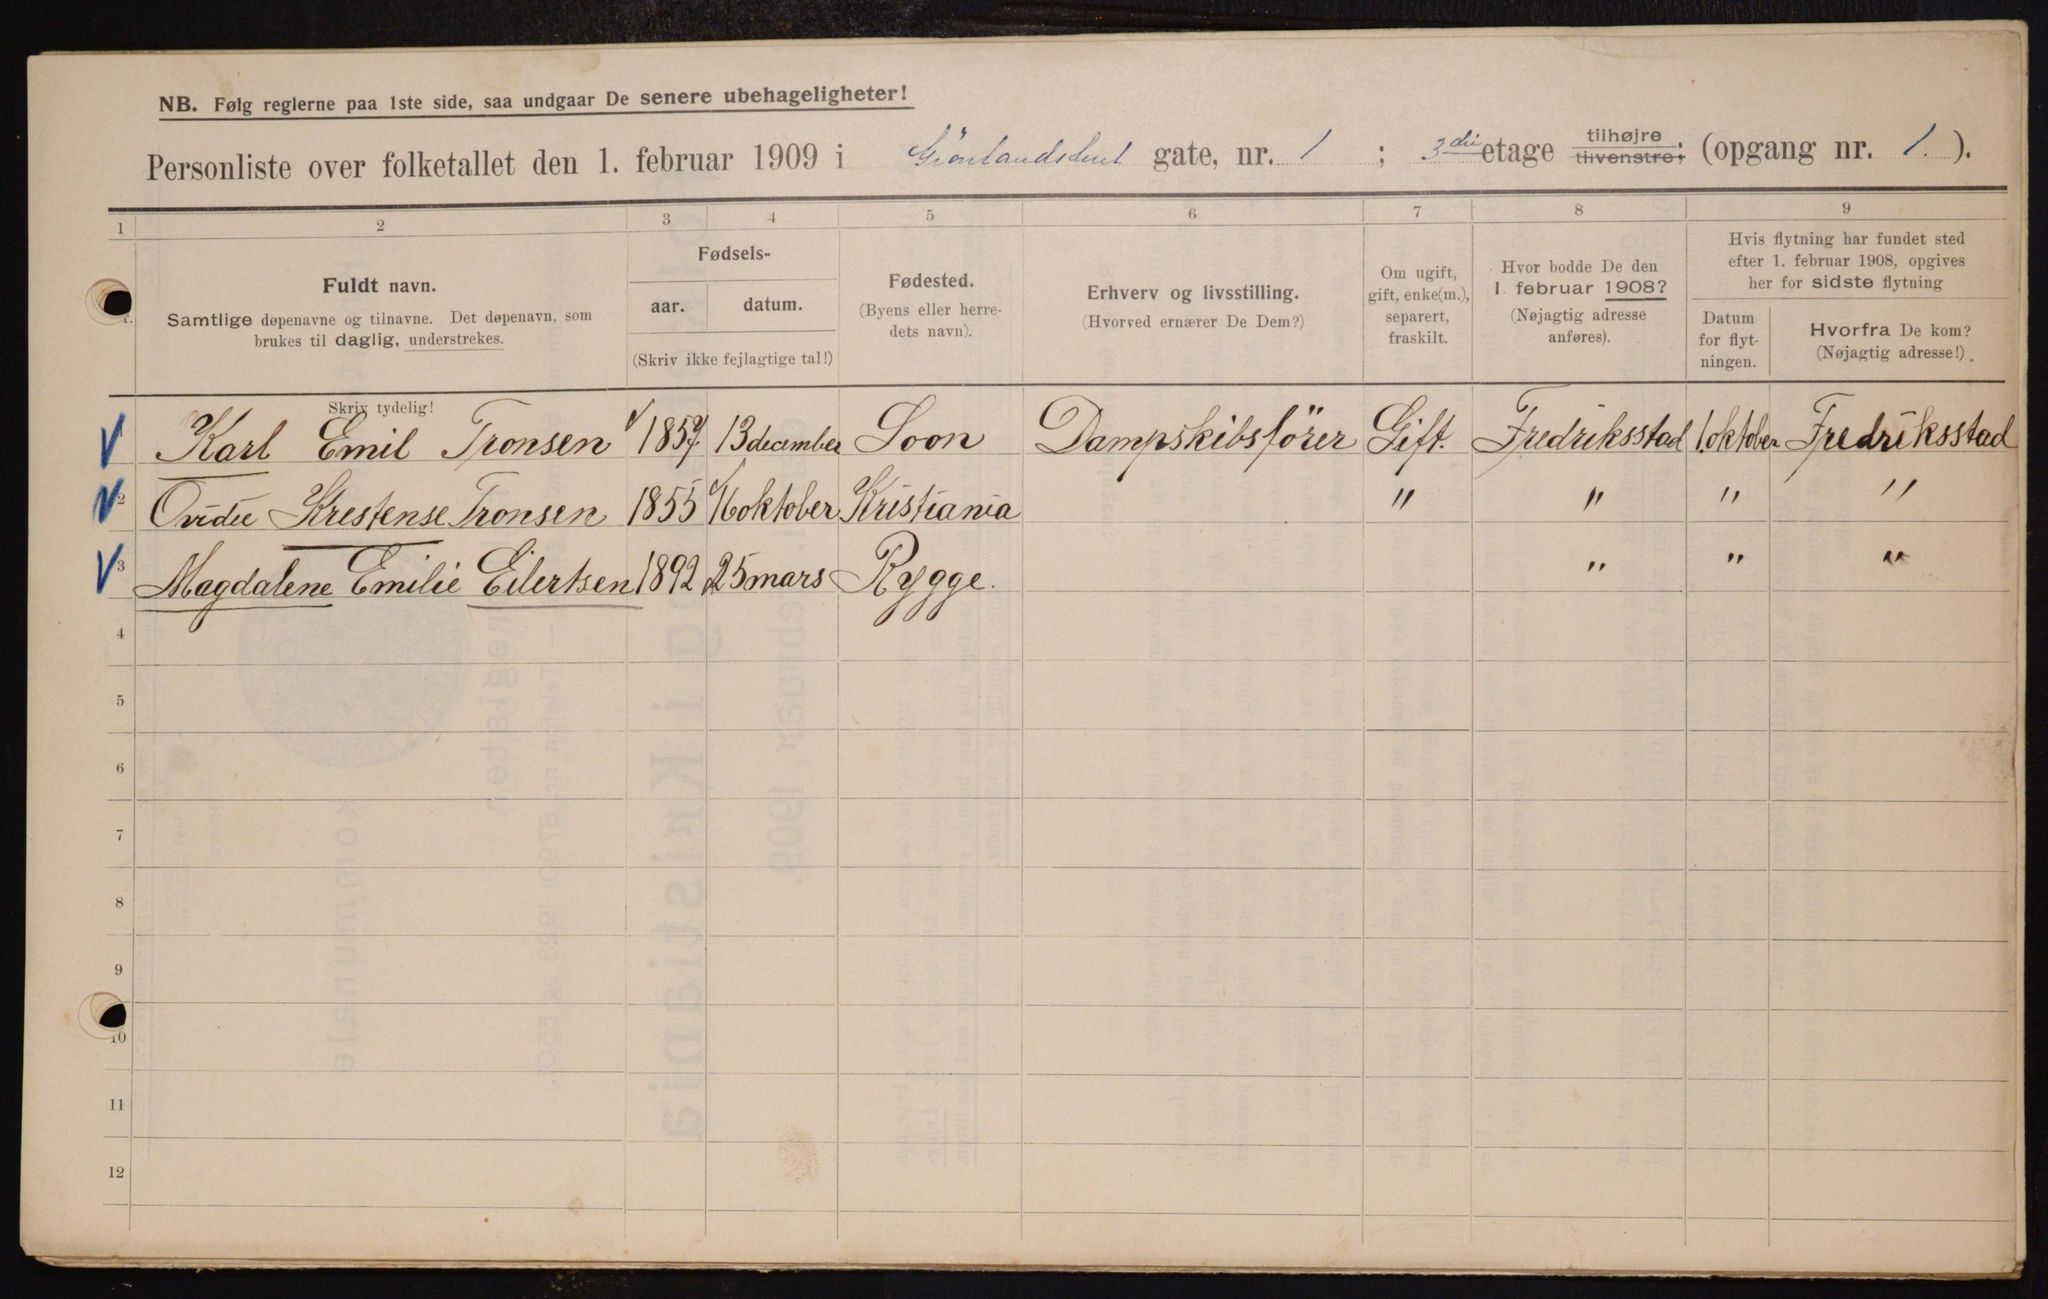 NB. Følg reglerne paa 1ste side, saa undgaar De senere ubehageligheter!
Personliste over folketallet den 1. februar 1909 i gate, nr. 1 ; 3die etage tilhøjre tilvenstre; (opgang nr. 1.).
1 2 3 4 5 6 7 8 9
Fuldt navn.
Samtlige døpenavne og tilnavne. Det døpenavn, som
brukes til daglig, understrekes.
Skriv tydelig!
Fødsels-
aar. datum.
(Skriv ikke fejlagtige tal!)
Fødested.
(Byens eller herre-
dets navn).
Erhverv og livsstilling.
(Hvorved ernærer De Dem?)
Om ugift,
gift, enke(m.),
separert,
fraskilt.
Hvor bodde De den
1. februar 1908?
(Nøjagtig adresse
anføres).
Hvis flytning har fundet sted
efter 1. februar 1908, opgives
her for sidste flytning
Datum
for flyt-
ningen.
Hvorfra De kom?
(Nøjagtig adresse!)
Karl Emil Tronsen 1857 13 december Soon Dampskibsfører Gift. Fredriksstad 1. oktober Fredriksstad
2 Krestense Tronsen 1855 16 oktober Kristiania " " " "
3 Magdalene Emilie Eilertsen 1892 25 mars Rygge. " " "
4
5
6
7
8
9
10
11
12